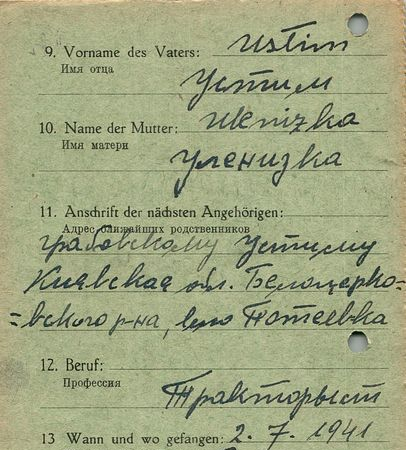 9. Vorname des Vaters: Ustim
Имя отца
Устим
10. Name der Mutter: Ulenizka
Имя матери
Уленизка
11. Anschrift der nächsten Angehörigen:
Адрес ближайших родственников
Грабовскому Устиму
Киевская обл. Белоцерко-
=вского р-на, село Потеевка
12. Beruf:
Профессия
Тракторыст
13 Wann und wo gefangen: 2. 7. 1941